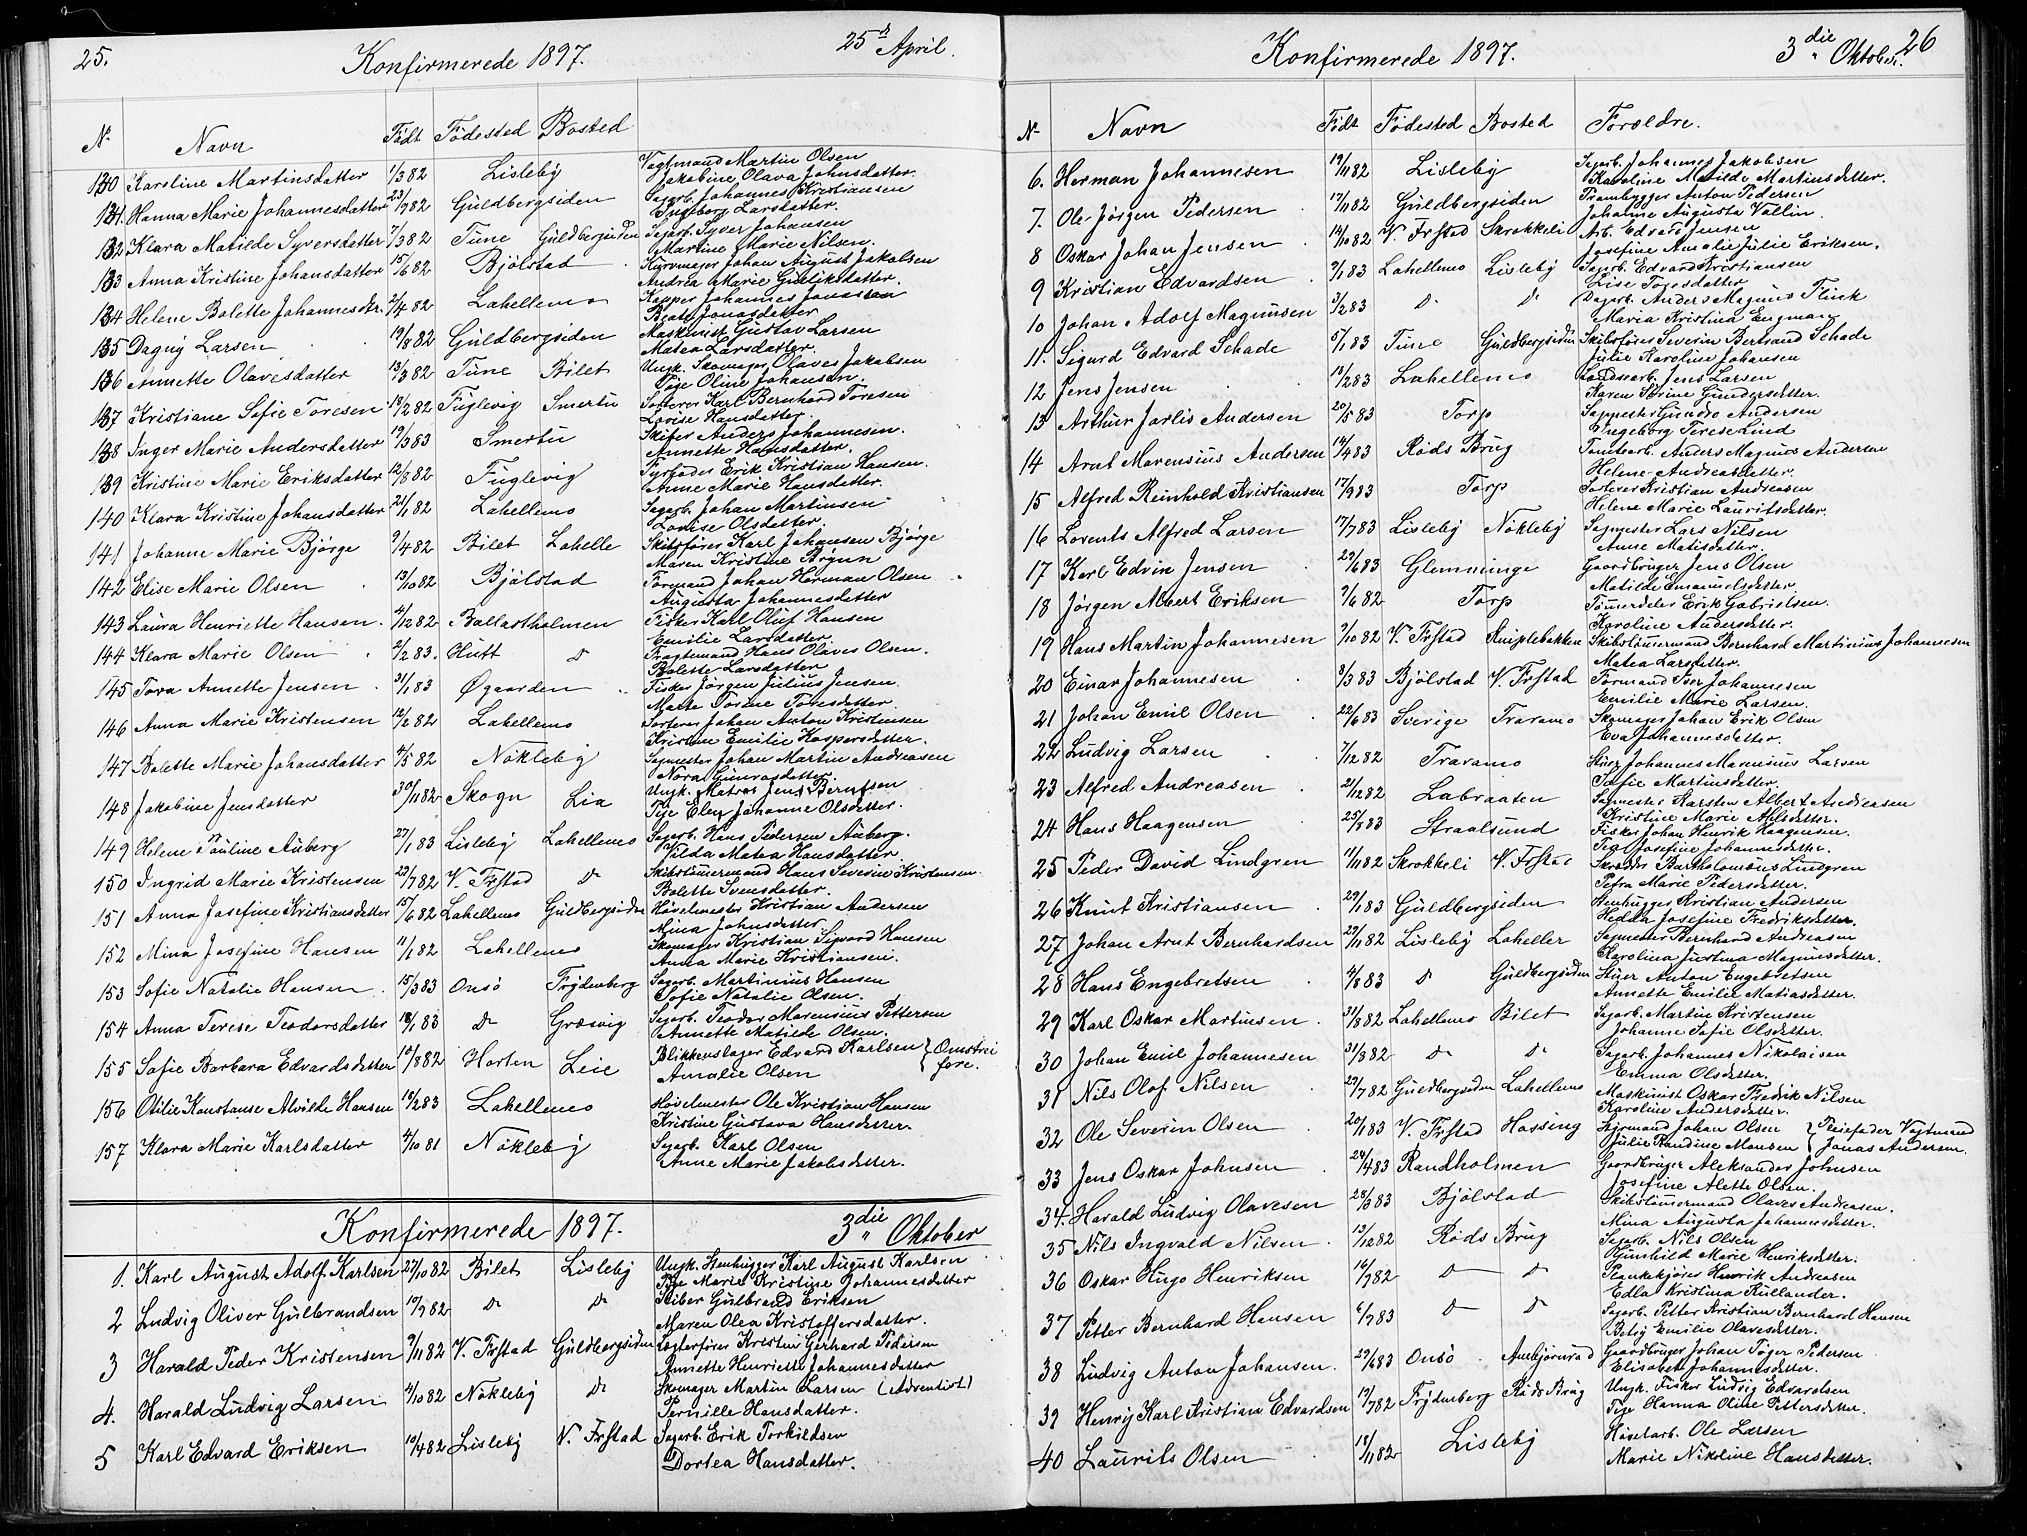 25.
Konfirmerede 1897.
25d April.
No Navn Født Fødested Bosted
130 Karoline Martinsdatter 1/3 82 Lisleby Vagtmand Martin Olsen
Jakobine Olava Johnsdatter.
131. Hanna Marie Johannesdatter 23/9 82 Guldbergsiden Sagarb. Johannes Kristiansen
Ingeborg Larsdatter.
132 Klara Matilde Syversdatter 7/3 82 Tune Guldbergsiden Sagarb. Syver Johansen
Martine Marie Nilsen.
133 Anna Kristine Johansdatter 15/6 82 Bjölstad Kurvmager Johan August Jakobsen
Andrea Marie Guliksdatter.
134 Helene Bolette Johannesdtr. 7/4 82 Lahellemo Kapper Johannes Jonassen
Beate Jonasdatter
135 Dagny Larsen 19/8 82 Guldbergsiden Maskinist Gustav Larsen
Matea Larsdatter.
136 Annette Olavesdatter 13/3 82 Tune Bilet Ungk. Skomager Olaves Jakobsen
Pige Oline Johansen.
137 Kristiane Sofie Toresen 18/2 82 Fuglevig Smertu Sorterer Karl Bernhard Toresen
Lovise Hansdatter.
138 Inger Marie Andersdatter 19/3 83 Smertu Skifer Anders Johannesen.
Annette Hansdatter.
139 Kristine Marie Eriksdatter 12/8 82 Fuglevig Fyrbøder Erik Kristian Hansen.
Anne Marie Hansdatter.
140 Klara Kristine Johansdatter 24/1 82 Lahellemo Sagarb. Johan Martinsen
Lovise Olsdatter.
141 Johanne Marie Bjørge 9/4 82 Bilet Lahelle Skibsfører Karl Johansen Bjørge
Maren Kristine Brynn
142 Elise Marie Olsen 13/10 82 Bjölstad Formand Johan Herman Olsen
Augusta Johannesdatter
143 Laura Henriette Hansen. 4/12 82 Ballastholmen Fisker Karl Oluf Hansen
Emilie Larsdatter.
144 Klara Marie Olsen 2/2 83. Huth do Fragtemand Hans Olaves Olsen.
Bolette Larsdatter
145 Tova Annette Jensen 31/1 83 Øgaarden Fisker Jørgen Julius Jensen.
Marte Torine Tobesdatter.
146 Anna Marie Kristensen 12/2 82 Lahellemo Sorterer Johan Anton Kristensen
Kristine Emilie Kaspersdatter.
147 Bolette Marie Johansdatter 4/5 82 Nökleby Sagmester Johan Martin Andreasen
Nora Gunrosdatter.
148 Jakobine Jensdatter 30/11 82 Skogn Lia Ungk. Matros Jens Berntsen
Pige Elen Johanne Olsdatter.
149 Helene Pauline Auberg 27/1 83 Lisleby Lahellemo Sagarb. Hans Pedersen Auberg.
Vilda Matea Hansdatter
150 Ingrid Marie Kristensen 22/7 82 V. Frstad do Skibstømermand Hans Severin Kristensen.
Bolette Svensdatter.
151 Anna Josefine Kristiansdatter 15/6 82 Lahellemo Guldbergsiden Høvelmester Kristian Andersen
Mina Johnsdatter
152 Mina Josefine Hansen 11/1 82 Lahellemo Skomager Kristian Sigvard Hansen
Anna Marie Kristiansen.
153 Sofie Natalie Hansen. 15/3 83 Onsö Frydenberg Sagarb. Martinius Hansen
Sofie Natalie Olsen.
154 Anna Terese Teodorsdatter 18/1 83 do Græsvig Sagarb. Teodor Marensius Pettersen
Annette Matilde Olsen.
155 Sofie Barbara Edvardsdatter 12/8 82 Horten Leie Blikkenslager Edvard Karlsen } Omstrei
Amalie Olsen { fere.
156 Otilie Konstanse Alvilde Hansen 13/2 83 Lahellemo Høvelmester Ole Kristian Hansen
Kristine Gustava Hansdatter.
157 Klara Marie Karlsdatter 4/10 81 Nökleby Sagarb. Karl Olsen
Anne Marie Jakobsdatter.
Konfirmerede 1897. 3die Oktober
1. Karl August Adolf Karlsen 27/10 82 Bilet Lisleby Ungk. Stenhugger Karl August Karlsen
Pige Marie Kristine Johannesdatter
2 Ludvig Oliver Gulbrandsen 10/9 82 do do Skiber Gulbrand Eriksen
Maren Olea Kristoffersdatter.
3 Harald Peder Kristensen 9/11 82 V. Frstad Guldbergsiden Lægterfører Kristen Gerhard Pedersen
Annette Henriette Johannesdatter
4. Harald Ludvig Larsen 4/10 82 Nökleby do Skomager Martin Larsen (Adventist)
Pernille Hansdatter.
5 Karl Edvard Eriksen 10/4 82 Lisleby V. Frstad Sagarb. Erik Torkildsen
Dortea Hansdatter.
Konfirmerede 1897.
3die Oktober.
26
No Navn Født Fødested Bosted Forældre.
6. Herman Johannesen 19/11 82 Lisleby Sagarb. Johannes Jakobsen
Karoline Matilde Martinsdatter.
7. Ole Jörgen Pedersen 17/11 82 Guldbergsiden Prambygger Anton Pedersen
Johanne Augusta Vallin.
8 Oskar Johan Jensen 14/10 82 V. Frstad Skrokkeli Arb. Edvard Jensen
Josefine Amalie Julie Eriksen.
9 Kristian Edvardsen 9/1 83 Lahellemo Lisleby Sagarb. Edvard Kristiansen
Lise Togesdatter
10 Johan Adolf Magnusen 3/2 83 do do Dagarb. Anders Magnus Flink
Maria Kristina Engman
11. Sigurd Edvard Schade 5/1 83 Tune Guldbergsiden Skibsfører Severin Bertrand Schade
Julie Karoline Johansen
12 Jens Jensen 18/2 83 Lahellemo Landsarb. Jens Larsen
Karen Strine Gundersdatter.
13 Arthur Jarlis Andersen 20/5 83 Torp Sagmester Gundro Andersen
Ingeborg Terese Lind
14 Arnt Marensius Andersen 14/4 83 Røds Brug Tomtearb. Anders Magnus Andersen
Helene Andreasdatter.
15 Alfred Reinhold Kristiansen 17/9 83 Torp Sorterer Kristian Andreasen
Helene Marie Lauritsdatter.
16 Lorents Alfred Larsen 17/7 83 Lisleby Nökleby Sagmester Lars Nilsen
Anne Matisdatter.
17 Karl Edvin Jensen 29/6 83 Glemminge Gaardbruger Jens Olsen
Matilde Emanuelsdatter.
18 Jörgen Albert Eriksen 9/6 82 Torp Tömerdeler Erik Gabrielsen.
Karoline Andersdatter.
19 Hans Martin Johannesen 9/10 82 V. Frstad Kniplebakken Skibstömermand Bernhard Martinius Johannesen
Matea Larsdatter.
20 Einar Johannesen 8/3 83 Bjölstad V. Frstad Formand Iver Johannesen
Emilie Marie Larsen.
21 Johan Emil Olsen 22/6 83 Sverige Traramo Skomager Johan Erik Olsen
Eva Johannesdatter.
22 Ludvig Larsen 7/12 82 Traramo Stuer Johannes Marenius Larsen
Sofie Martinsdatter.
23 Alfred Andreasen 21/12 82 Labraaten Sagmester Karsten Albert Andreasen
Kristine Marie Nilsdatter.
24 Hans Haagensen 25/8 83 Straalsund Fisker Johan Henrik Haagensen.
Josefine Johannesdatter.
25 Peder David Lindgren 11/11 82 Skrokkeli V. Frstad Skredder Bartholomæus Lindgren
Petra Marie Pedersdatter.
26 Knut Kristiansen 29/1 83 Guldbergsiden Stenhugger Kristian Andersen
Hedda Josefine Fredriksdatter.
27 Johan Arnt Bernhardsen 29/11 82 Lisleby Laheller Sagmester Bernhard Andreasen
Karolina Justina Magnusdatter.
28 Hans Engebretsen 4/8 83 do Guldbergsiden Stuer Anton Engebretsen
Annette Emilie Matiasdatter.
29 Karl Oskar Martinsen 31/8 82 Lahellemo Bilet Sagarb. Martin Kristensen
Johanne Sofie Olsdatter.
30 Johan Emil Johannesen 31/8 82 do do Sagarb. Johannes Nikolaisen
Emma Olsdatter.
31 Nils Olof Nilsen 29/7 82 Guldbergsiden Lahellemo Maskinist Oskar Fredrik Nilsen
Karoline Andersdatter.
32 Ole Severin Olsen 20/1 83 V. Frstad Hassing Sagmand Johan Olsen } Pleiefader Vagtmand
Julie Randine Monsen { Jonas Andersen.
33 Jens Oskar Johnsen 24/4 83 Randholmen Gaardbruger Aleksander Johnsen
Josefine Alette Olsen.
34. Harald Ludvig Olavesen 28/6 83 Bjölstad Skibstömermand Olaves Andreasen.
Mina Augusta Johannesdatter.
35 Nils Ingvald Nilsen 13/12 82 Røds Brug Sagarb. Nils Olsen
Gunhild Marie Henriksdatter.
36 Oskar Hugo Henriksen 16/9 82 do do Plankekjører Henrik Andreasen
Edla Kristina Kullander.
37 Petter Bernhard Hansen 6/9 83 do do Sagarb. Petter Kristian Bernhard Hansen
Betsy Emilie Olavesdatter.
38 Ludvig Anton Johansen. 29/6 83 Onsö Aubjørnrød Gaardbruger Johan Tøger Pedersen
Elisabet Johannesdatter.
39 Henry Karl Kristian Edvardsen 19/7 82 Frydenberg Røds Brug Ungk. Fisker Ludvig Edvardsen
Pige Hanna Oline Pettersdatter.
40 Laurits Olsen 18/11 82 Lisleby Høvelarb. Ole Larsen
Marie Nikoline Hansdatter.